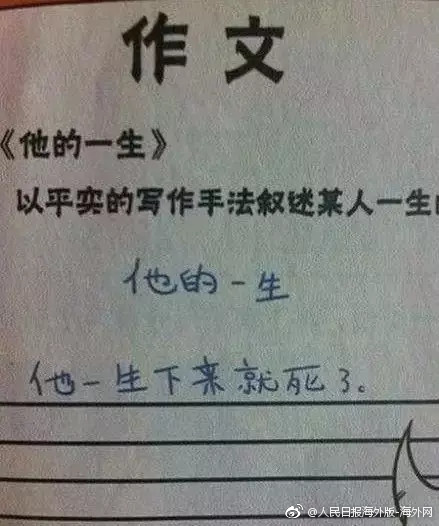 作文
《他的一生》
以平实的写作手法叙述某人一生的
他的一生
他一生下来就死了。
@人民日报海外版-海外网